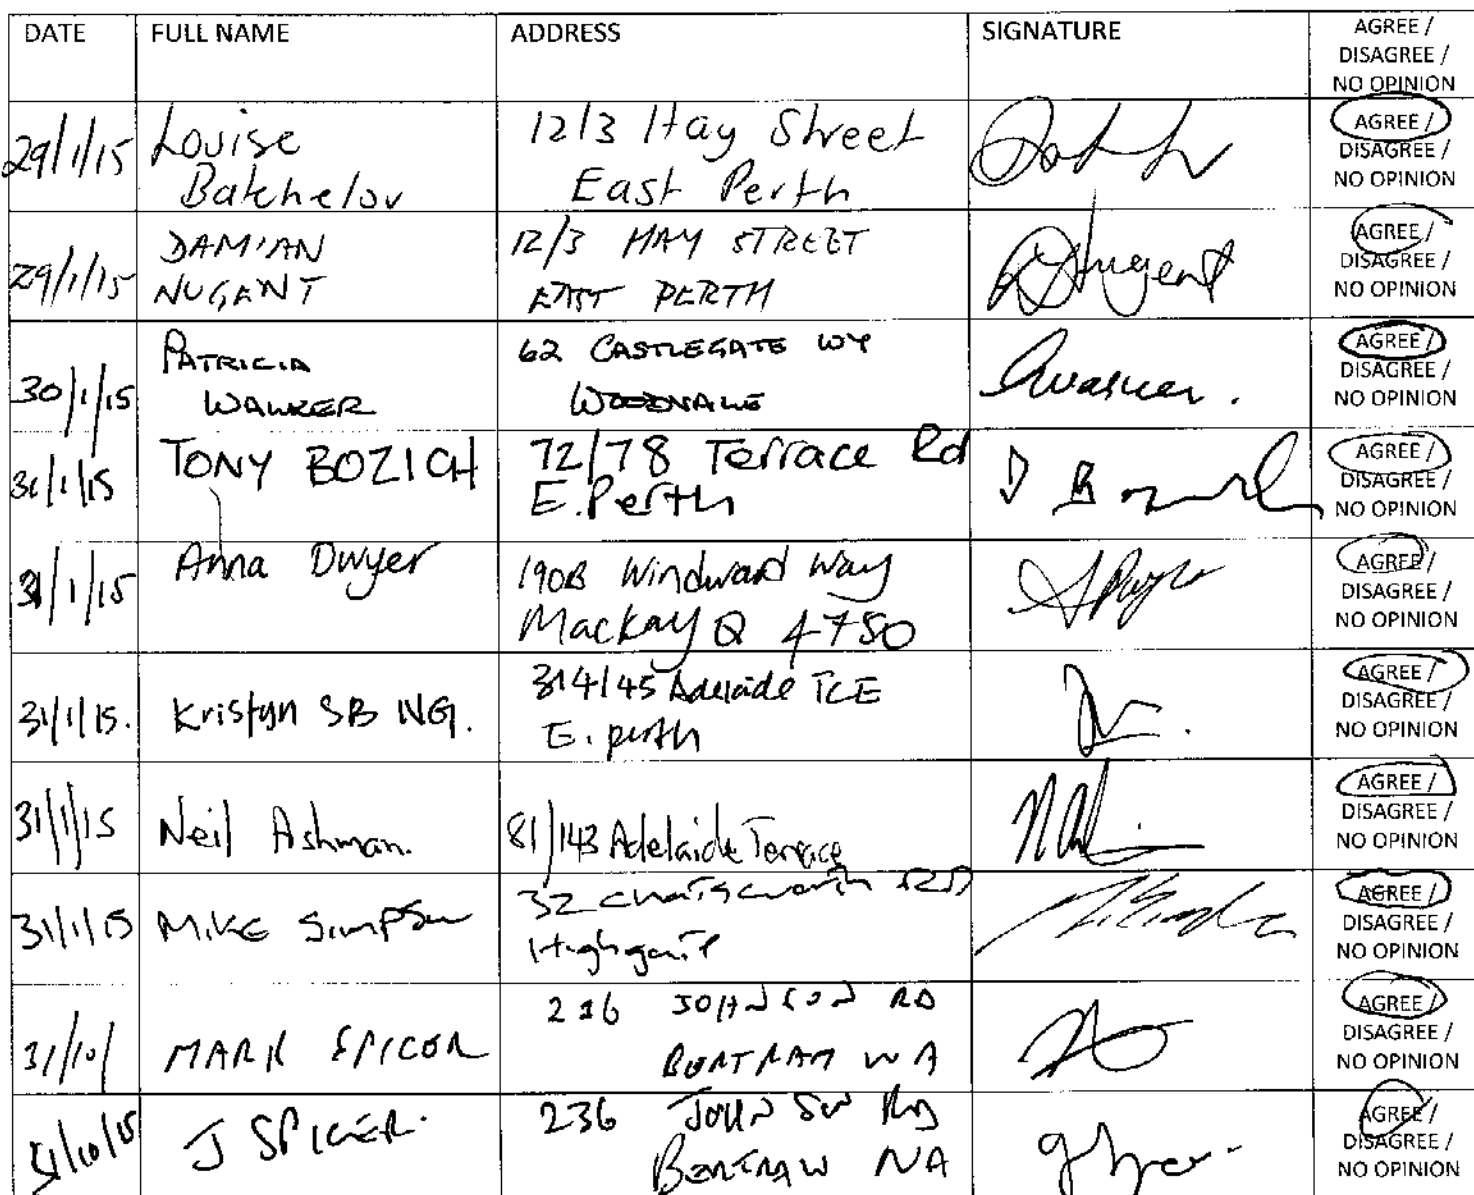 DATE FULL NAME ADDRESS SIGNATURE AGREE /
DISAGREE /
NO OPINION
29/1/15 Louise Batchelor 12/3 Hay Street East Perth AGREE /
DISAGREE /
NO OPINION
29/1/15 DAMIAN NUGENT 12/3 HAY STREET EAST PERTH DNugent AGREE /
DISAGREE /
NO OPINION
30/1/15 PATRICIA WALKER 62 CASTLEGATE WY WOODVALE AGREE /
DISAGREE /
NO OPINION
31/1/15 TONY BOZICH 72/78 Terrace Rd E. Perth AGREE /
DISAGREE /
NO OPINION
31/1/15 Anna Dwyer 190B Windward Way Mackay Q 4750 AGREE /
DISAGREE /
NO OPINION
31/1/15. Kristyn SB NG. 314/45 Adelaide TCE E. perth AGREE /
DISAGREE /
NO OPINION
31/1/15 Neil Ashman. 81/143 Adelaide Terrace AGREE /
DISAGREE /
NO OPINION
31/1/15 MIKE SIMPSON 32 Chatsworth RD Highgate AGREE /
DISAGREE /
NO OPINION
31/10/ MARK SPICER JOHNSON RD BERTRAM WA AGREE /
DISAGREE /
NO OPINION
31/10/15 J SPICER. 236 JOHNSON RD BERTRAM WA AGREE /
DISAGREE /
NO OPINION